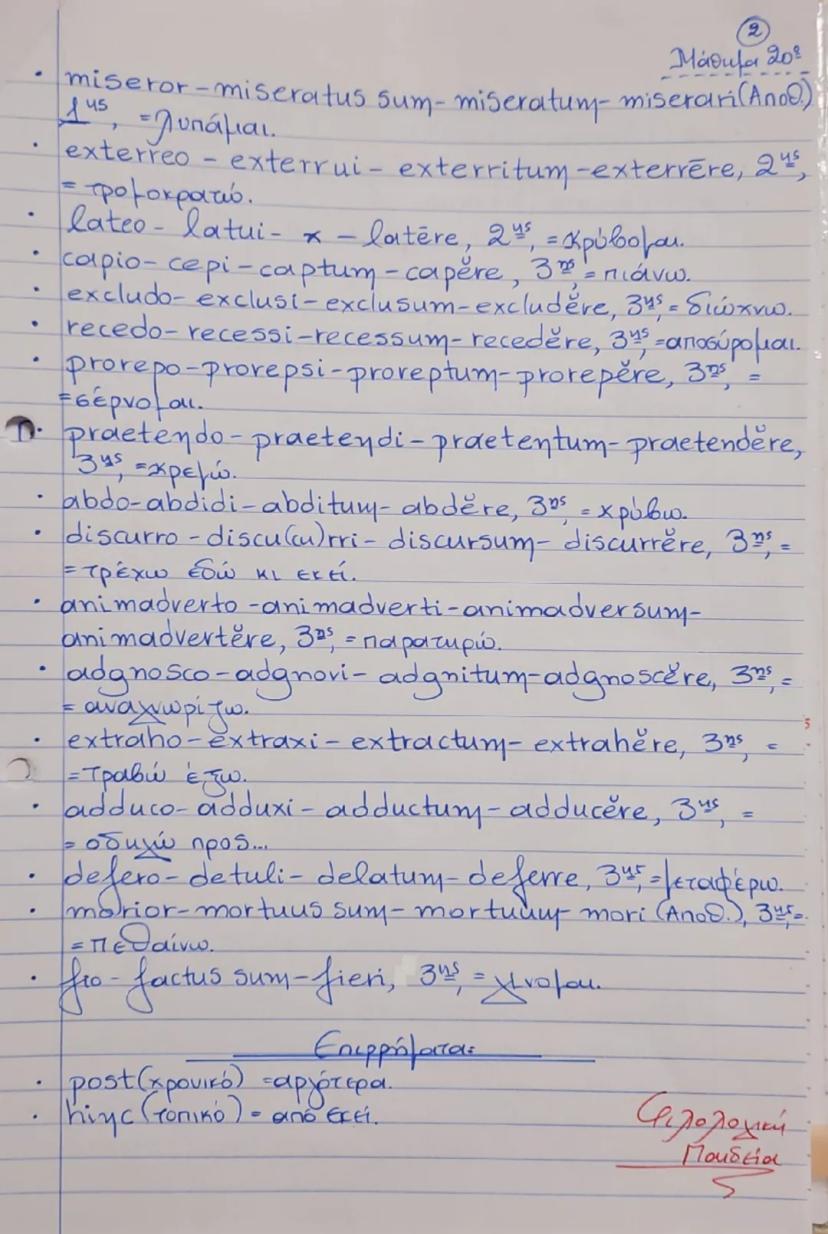 2
Μάθημα 20ο
• miseror-miseratus sum-miseratum-miserari (Αποθ.)
1ης, =λυπάμαι.
• exterreo - exterrui - exterritum-exterrēre, 2ης,
= τρομοκρατώ.
• lateo - latui - x - latēre, 2ης, =κρύβομαι.
• capio-cepi-captum-capĕre, 3ης, = πιάνω.
• excludo-exclusi-exclusum-excludĕre, 3ης, = διώχνω.
• recedo-recessi-recessum-recedĕre, 3ης, =αποσύρομαι.
• prorepo-prorepsi-proreptum-prorepĕre, 3ης, =
=σέρνομαι.
• praetendo-praetendi-praetentum-praetendĕre,
3ης, =κρεμώ.
• abdo-abdidi-abditum-abdĕre, 3ης, = κρύβω.
• discurro-discu(cu)rri-discursum-discurrĕre, 3ης, =
= τρέχω εδώ κι εκεί.
• animadverto-animadverti-animadversum-
animadvertĕre, 3ης, =παρατηρώ.
• adgnosco-adgnovi-adgnitum-adgnoscĕre, 3ης, =
= αναγνωρίζω.
• extraho-extraxi-extractum-extrahĕre, 3ης, =
=τραβώ έξω.
• adduco-adduxi-adductum-adducĕre, 3ης, =
= οδηγώ προς...
• defero-detuli-delatum-deferre, 3ης, =μεταφέρω.
• morior-mortuus sum-mortuum-mori (Αποθ.), 3ης, =
= πεθαίνω.
• fio-factus sum-fieri, 3ης, = γίνομαι.
Επιρρήματα:
• post (χρονικό) =αργότερα.
• hinc (τοπικό) = από εκεί.
Φιλολογική
Παιδεία